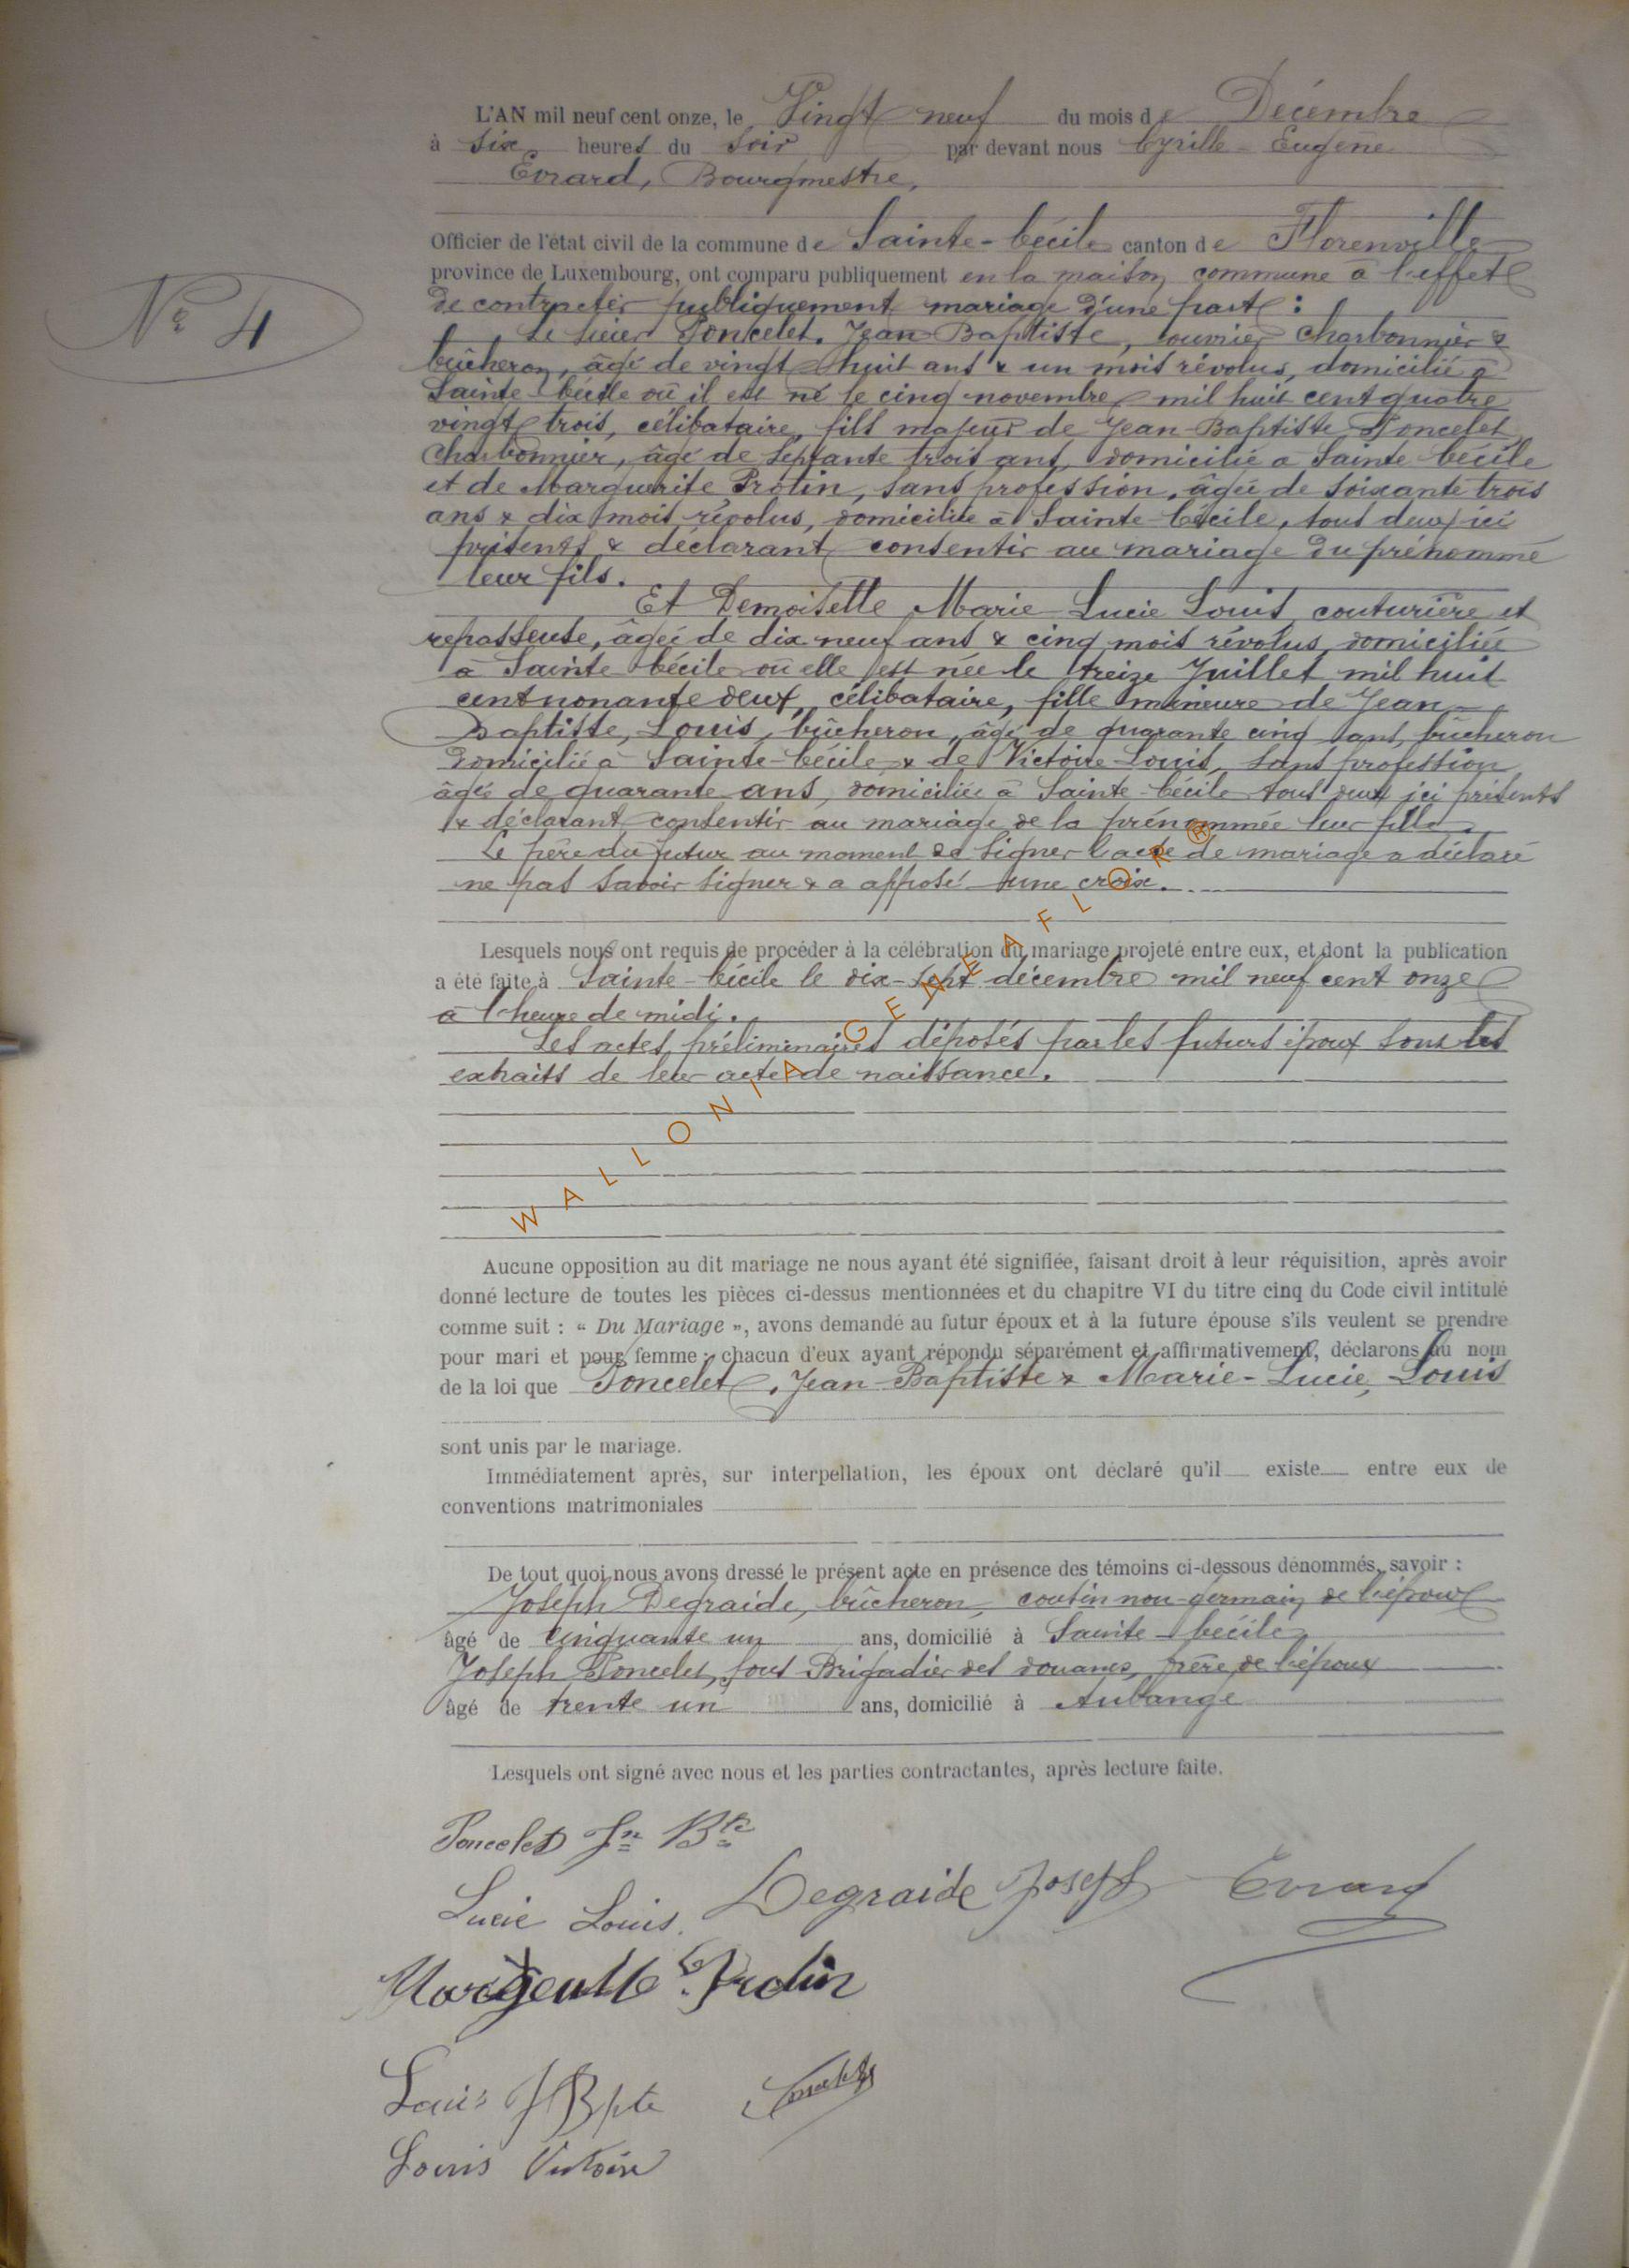 L'AN mil neuf cent onze, le Vingt neuf du mois de Décembre
à six heures du soir par devant nous Cyrille - Eugène
Evrard, Bourgmestre,
Officier de l'état civil de la commune de Sainte-Cécile canton de Florenville
province de Luxembourg, ont comparu publiquement en la maison commune à l'effet
de contracter publiquement mariage d'une part :
N° 4
Le sieur Poncelet. Jean-Baptiste, ouvrier charbonnier &
bûcheron, âgé de vingt huit ans & un mois révolus, domicilié à
Sainte-Cécile où il est né le cinq novembre mil huit cent quatre
vingt trois, célibataire, fils majeur de Jean-Baptiste Poncelet,
charbonnier, âgé de septante trois ans, domicilié à Sainte Cécile
et de Marguerite Protin, sans profession, âgée de soixante trois
ans & dix mois révolus, domiciliée à Sainte-Cécile, tous deux ici
présents & déclarant consentir au mariage du prénommé
leur fils.
Et Demoiselle Marie-Lucie Louis couturière et
repasseuse, âgée de dix neuf ans & cinq mois révolus, domiciliée
à Sainte Cécile où elle est née le treize Juillet mil huit
cent nonante deux, célibataire, fille mineure de Jean-
Baptiste, Louis, bûcheron, âgé de quarante cinq ans, bûcheron
domicilié à Sainte-Cécile & de Victoire Louis, sans profession
âgée de quarante ans, domiciliée à Sainte-Cécile tous deux ici présents
& déclarant consentir au mariage de la prénommée leur fille.
Le père du futur au moment de signer l'acte de mariage a déclaré
ne pas savoir signer & a apposé une croix.
Lesquels nous ont requis de procéder à la célébration du mariage projeté entre eux, et dont la publication
a été faite à Sainte-Cécile le dix-sept décembre mil neuf cent onze
à l'heure de midi.
Les actes préliminaires déposés par les futurs époux sont les
extraits de leur acte de naissance.
WALLONIA GENEAFLOR ®
Aucune opposition au dit mariage ne nous ayant été signifiée, faisant droit à leur réquisition, après avoir
donné lecture de toutes les pièces ci-dessus mentionnées et du chapitre VI du titre cinq du Code civil intitulé
comme suit : « Du Mariage », avons demandé au futur époux et à la future épouse s'ils veulent se prendre
pour mari et pour femme ; chacun d'eux ayant répondu séparément et affirmativement, déclarons au nom
de la loi que Poncelet, Jean-Baptiste & Marie-Lucie, Louis
sont unis par le mariage.
Immédiatement après, sur interpellation, les époux ont déclaré qu'il existe entre eux de
conventions matrimoniales
De tout quoi nous avons dressé le présent acte en présence des témoins ci-dessous dénommés, savoir :
Joseph Degraide, bûcheron, cousin non germain de l'époux
âgé de cinquante un ans, domicilié à Sainte-Cécile
Joseph Poncelet, sous Brigadier des douanes, frère de l'époux
âgé de trente un ans, domicilié à Aubange
Lesquels ont signé avec nous et les parties contractantes, après lecture faite.
Poncelet Jn Bte
Lucie Louis. Degraide Joseph Evrard
Protin
Louis J Bpte
Louis Victoire